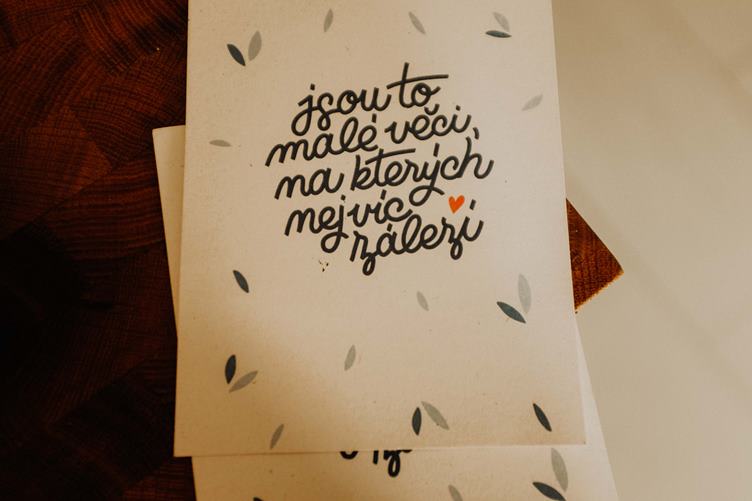 jsou to
malé věci,
na kterých
nejvíc
záleží